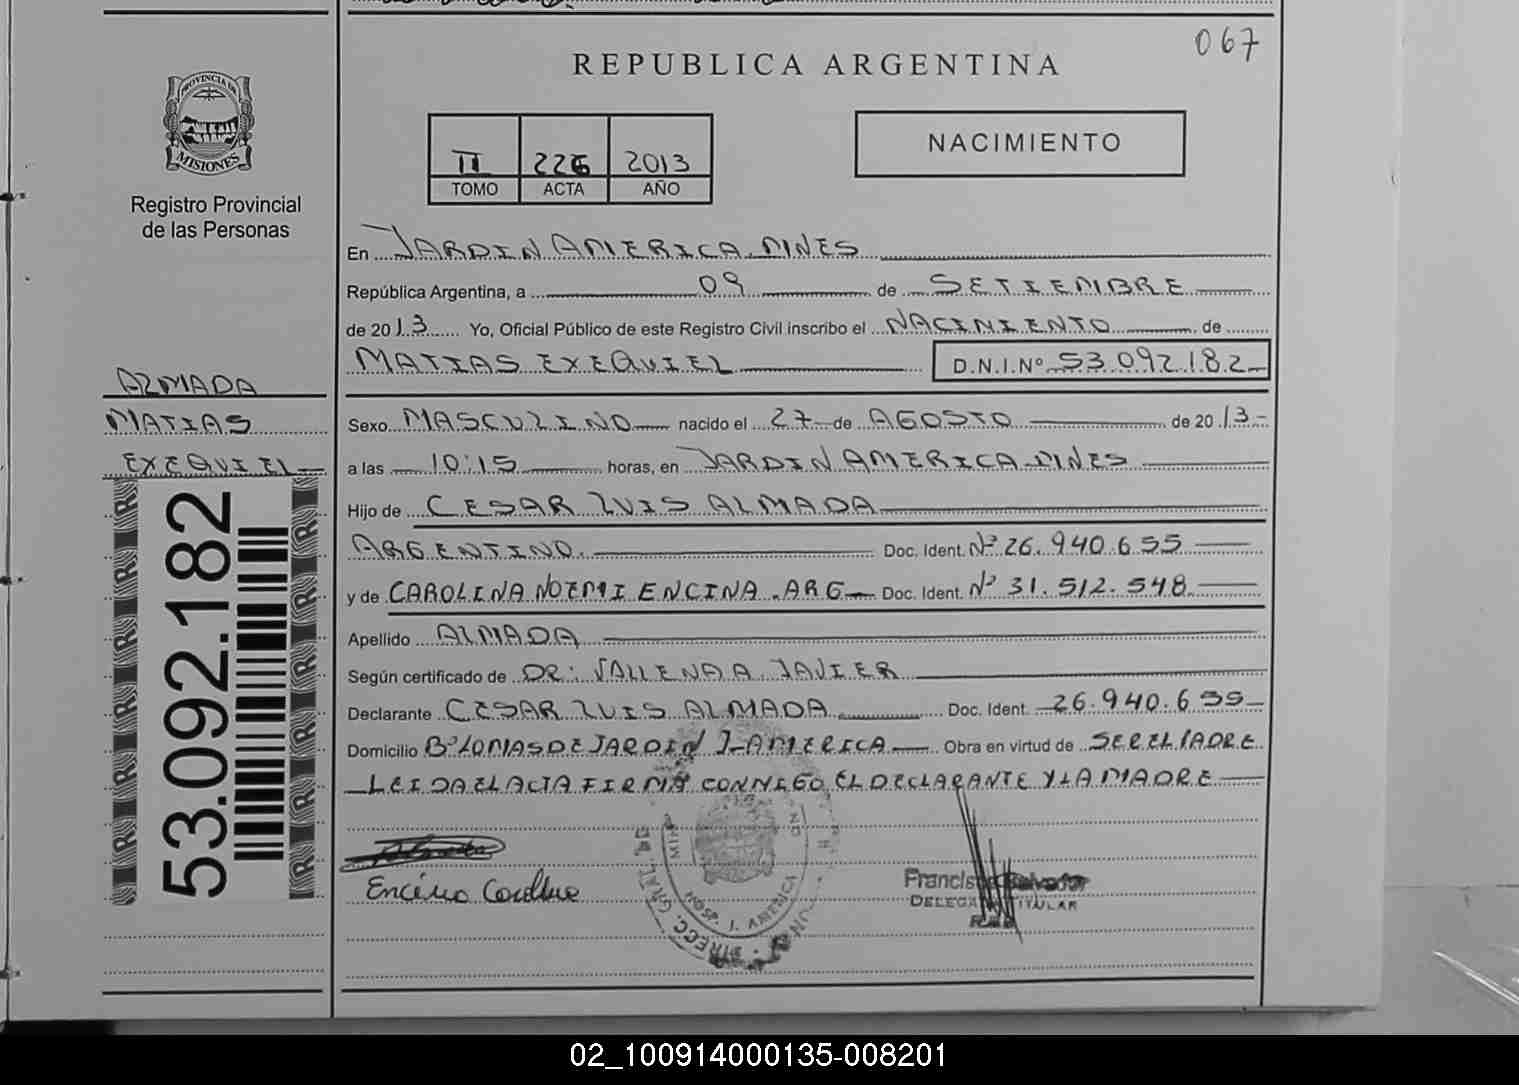 067
REPUBLICA ARGENTINA
PROVINCIA DE
MISIONES
Registro Provincial
de las Personas
II 226 2013
TOMO ACTA AÑO
NACIMIENTO
En JARDIN AMERICA MNES
República Argentina, a 09 de SETIEMBRE
de 2013 Yo, Oficial Público de este Registro Civil inscribo el NACIMIENTO de
MATIAS EXEQUIEL D.N.I.Nº 53.092.182
ALMADA
MATIAS
EXEQUIEL
Sexo MASCULINO nacido el 27 de AGOSTO de 2013
a las 10:15 horas, en JARDIN AMERICA MNES
Hijo de CESAR LUIS ALMADA
ARGENTINO. Doc. Ident. Nº 26.940.655
y de CAROLINA NOEMI ENCINA. ARG Doc. Ident. Nº 31.512.548
Apellido ALMADA
Según certificado de DR: JAVIER
Declarante CESAR LUIS ALMADA Doc. Ident. 26.940.655
Domicilio Bº LOMAS DE JARDIN J-AMERICA Obra en virtud de SER EL PADRE
LEIDA EL ACTA FIRMA CONMIGO EL DECLARANTE Y LA MADRE
53.092.182
Encina
HOSP. J. AMERICA
DIRECC. GRAL. DE
Francisco Salvador
DELEGADO TITULAR
02_100914000135-008201